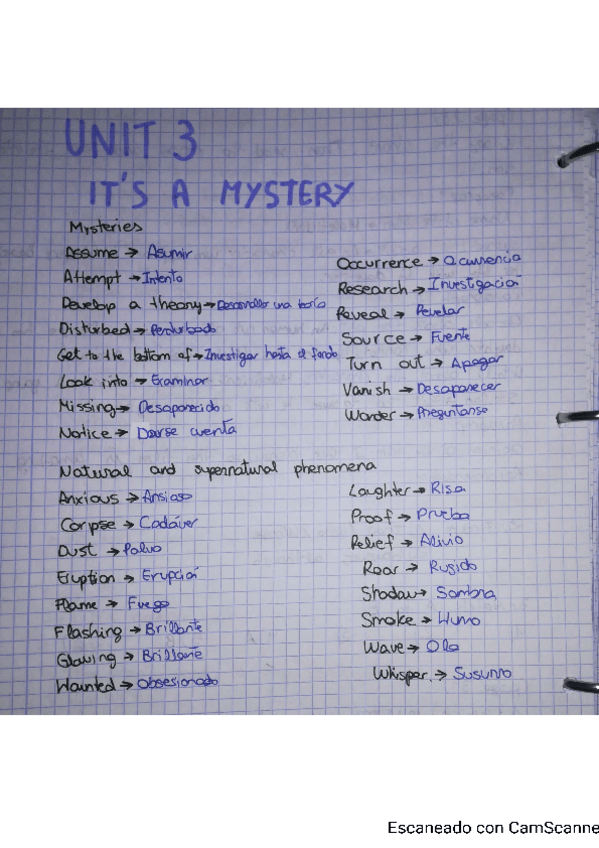 UNIT 3
IT'S A MYSTERY
Mysteries
Assume → Asumir
Attempt → Intento
Develop a theory → Desarrollar una teoría
Disturbed → Perturbado
Get to the bottom of → Investigar hasta el fondo
Look into → Examinar
Missing → Desaparecido
Notice → Darse cuenta
Occurrence → Ocurrencia
Research → Investigación
Reveal → Revelar
Source → Fuente
Turn out → Apagar
Vanish → Desaparecer
Wonder → Preguntarse
Natural and supernatural phenomena
Anxious → Ansioso
Corpse → Cadáver
Dust → Polvo
Eruption → Erupción
Flame → Fuego
Flashing → Brillante
Glowing → Brillante
Haunted → Obsesionado
Laughter → Risa
Proof → Prueba
Relief → Alivio
Roar → Rugido
Shadow → Sombra
Smoke → Humo
Wave → Ola
Whisper → Susurro
Escaneado con CamScanne